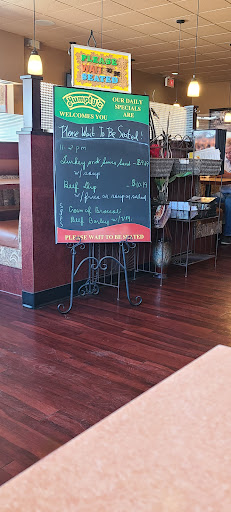 PLEASE
WAIT TO BE
SEATED
Humpty's
WELCOMES YOU
OUR DAILY
SPECIALS
ARE
Please Wait To Be Seated!
11-2 pm
Turkey and
w/soup
Beef Dip
w/fries or soup or salad
Cream of Broccoli
Beef Barley
PLEASE WAIT TO BE SEATED